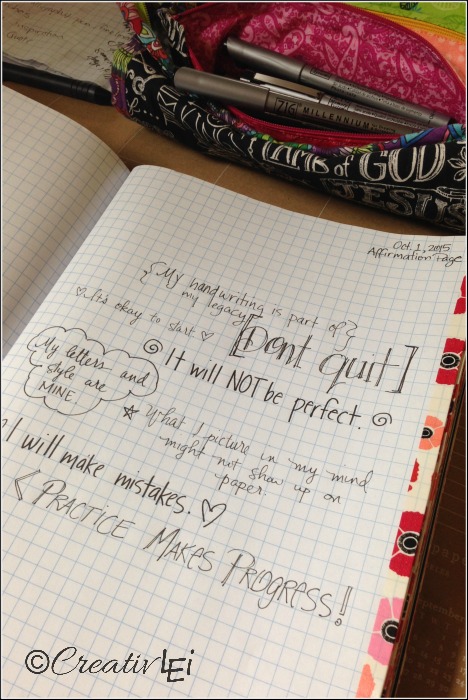 ZIG MILLENNIUM
LAMB of GOD
JESUS
Oct. 1, 2015
Affirmation Page
{My handwriting is part of
my legacy}
♡ It's okay to start ♡
[Dont quit]
My letters and
style are
MINE.
It will NOT be perfect.
☆ What I picture in my mind
might not show up on
paper.
I will make mistakes. ♡
<PRACTICE MAKES PROGRESS!
©CreativLEi